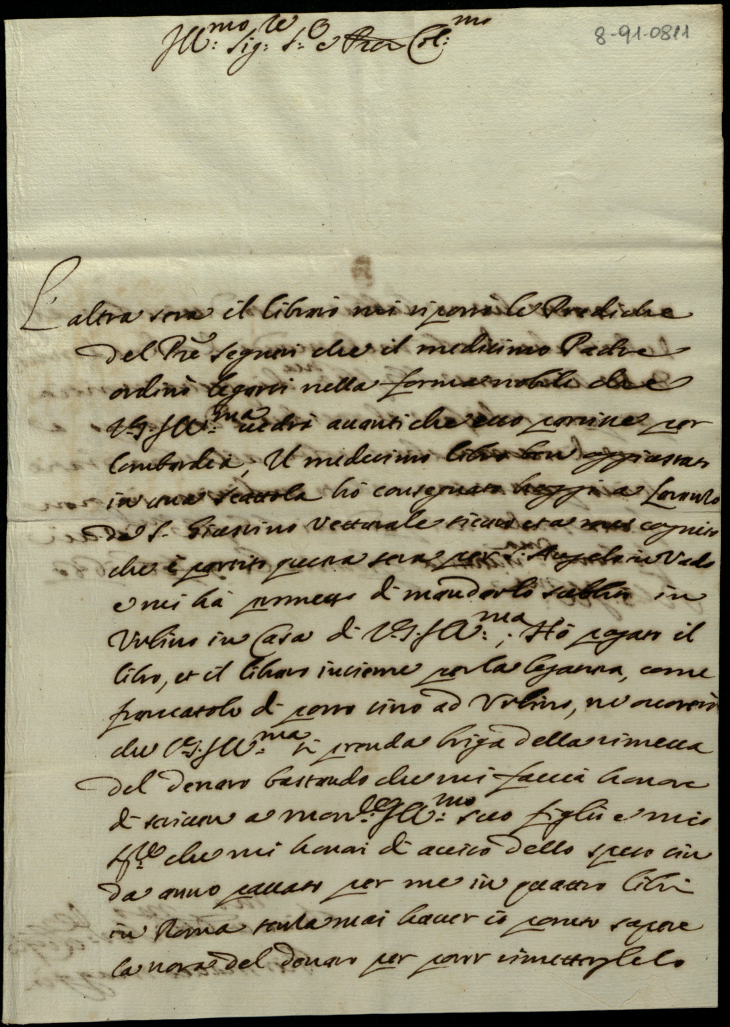 8-91-0811
Ill:mo Sig:re S:e e Pron Col:mo
L'altra sera il libraro mi riportò le Prediche
del Pre Segneri che il medesimo Padre
ordinò legarsi nella forma nobile che
V.S. Ill:ma vedrà avanti che esso partisse per
Lombardia, Il medesimo libro ben aggiustato
in una scattola hò consegnato hoggi a Lorenzo
da S. Giustino Vetturale sicuro
che è partito questa sera per S. Angelo in Vado
e mi hà promesso di mandarlo subbito in
Urbino in Casa di V.S. Ill:ma; Hò pagato il
libro, et il libraro insieme per la legatura, come
francatolo di porto sino ad Urbino, ne occorre
che V.S. Ill:ma si prenda briga della rimessa
del denaro bastando che mi faccia honore
di scrivere a Mon:re Ill:mo suo figlio e mio
Sig:re che mi honori di aviso dello speso sin
da anno passato per me in quattro libri
in Roma senza mai haver io potuto sapere
la nota del denaro per poter rimetterglelo